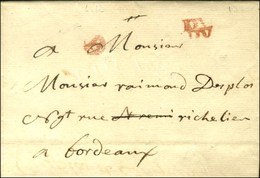 a Monsieur
Monsieur raimond Desplos
Ngt rue St remi richelieu
a bordeaux